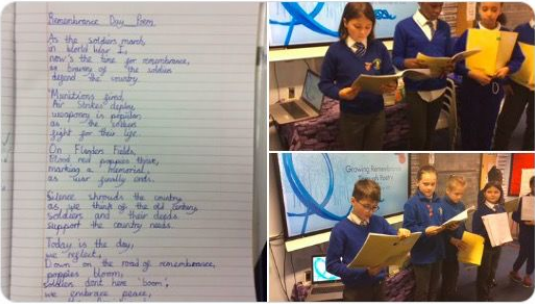 Remembrance Day Poem
As the soldiers march,
in World War I,
now's the time for remembrance,
as bravery the soldier
defend the country.
Munitions fired,
Air Strikes deploy,
weaponry is
as the soldier
fight for their life.
On Flanders Fields,
Blood red poppies thrive,
marking a memorial,
as war finally ends.
Silence shrouds the country
as, we think of the old
soldiers and their deeds
support the country needs.
Today is the day,
we reflect,
Down on the road of remembrance,
poppies bloom,
soldiers dont here "boom",
we peace,
Growing Remembrance